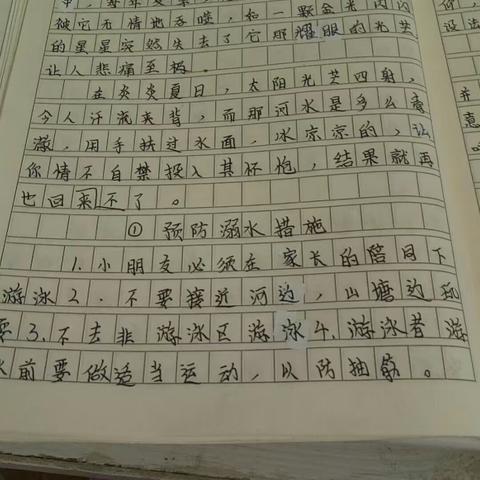 被它无情地吞噬，如一颗金光闪闪
的星星突然失去了它那耀眼的光芒
让人悲痛至极。
在炎炎夏日，太阳光芒四射，
令人汗流夹背，而那河水是多么清
澈，用手抚过水面，冰凉凉的，让
你情不自禁投入其怀抱，结果就再
也回来不了。
①预防溺水措施
1.小朋友必须在家长的陪同下
游泳2.不要接近河边，山塘边玩
耍3.不去非游泳区游泳4.游泳者游
前要做适当运动，以防抽筋。